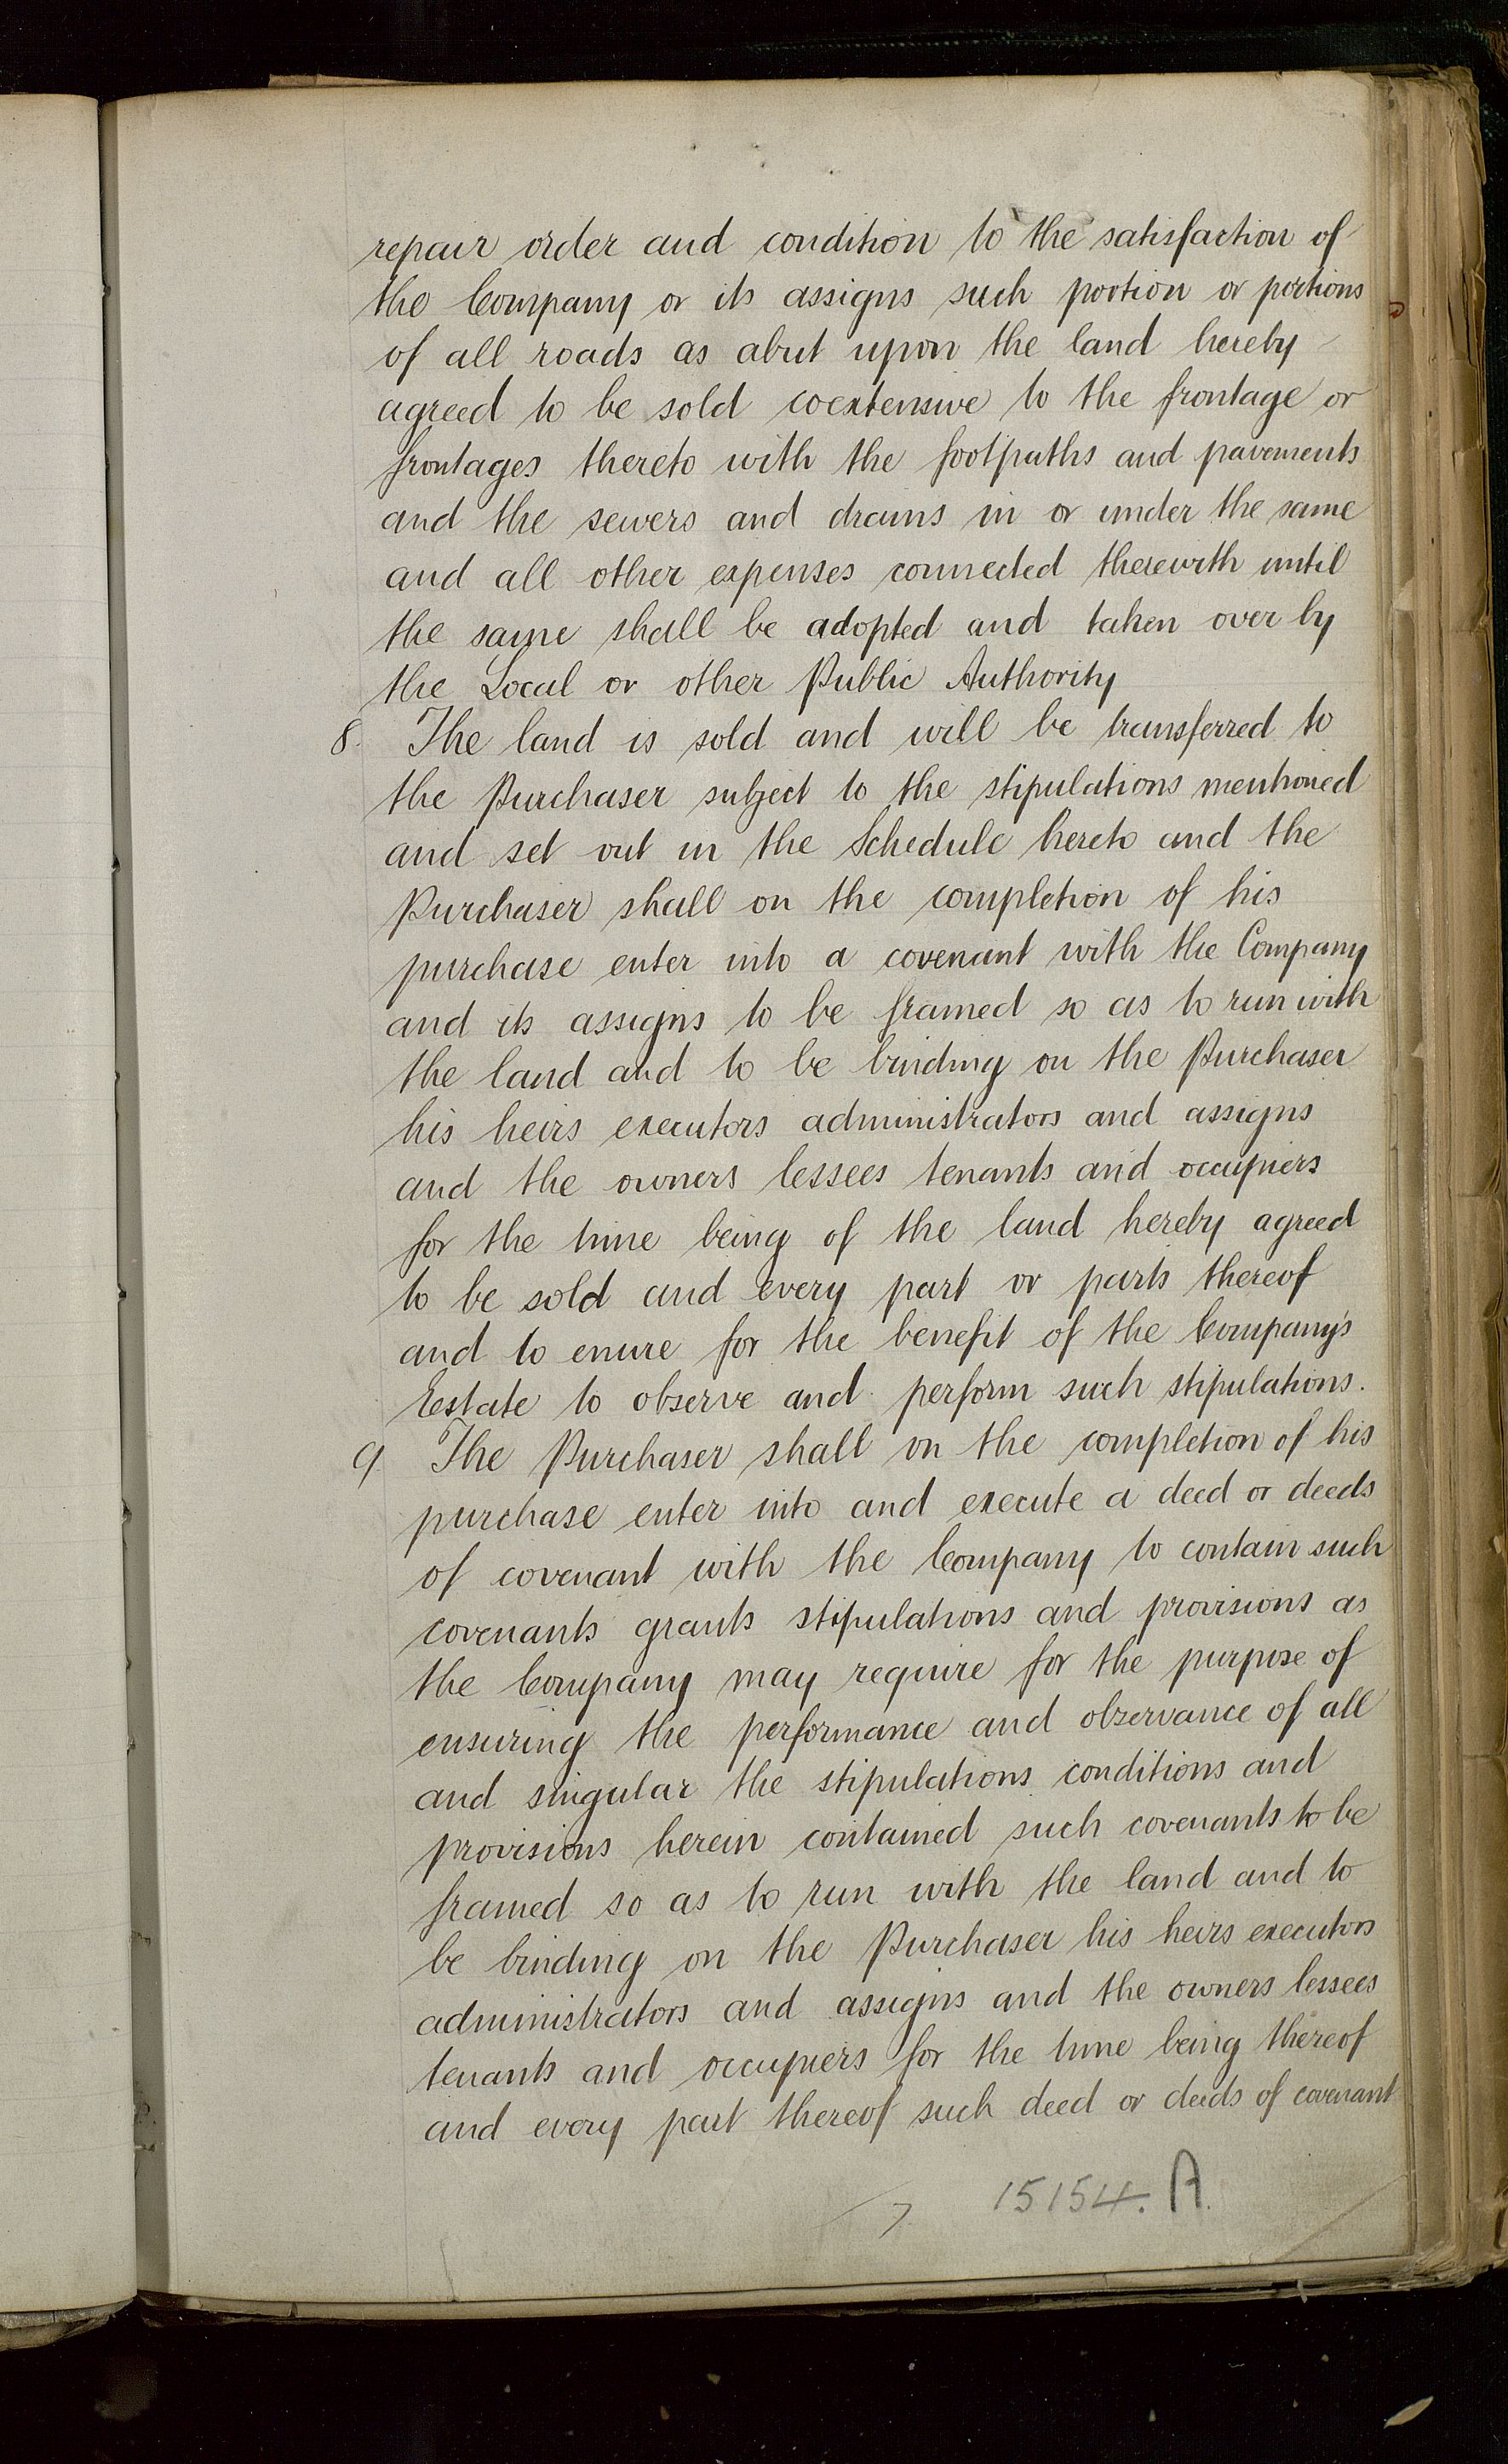 repair order and condition to the satisfaction of
the Company or its assigns such portion or portions
of all roads as abut upon the land hereby
agreed to be sold coextensive to the frontage or
frontages thereto with the footpaths and pavements
and the sewers and drains in or under the same
and all other expenses connected therewith until
the same shall be adopted and taken over by
the Local or other Public Authority
8. The land is sold and will be transferred to
the Purchaser subject to the stipulations mentioned
and set out in the Schedule hereto and the
Purchaser shall on the completion of his
purchase enter into a covenant with the Company
and its assigns to be framed so as to run with
the land and to be binding on the Purchaser
his heirs executors administrators and assigns
and the owners lessees tenants and occupiers
for the time being of the land hereby agreed
to be sold and every part or parts thereof
and to enure for the benefit of the Company's
Estate to observe and perform such stipulations.
9. The Purchaser shall on the completion of his
purchase enter into and execute a deed or deeds
of covenant with the Company to contain such
covenants grants stipulations and provisions as
the Company may require for the purpose of
ensuring the performance and observance of all
and singular the stipulations conditions and
provisions herein contained such covenants to be
framed so as to run with the land and to
be binding on the Purchaser his heirs executors
administrators and assigns and the owners lessees
tenants and occupiers for the time being thereof
and every part thereof such deed or deeds of covenant
7. 15154. A.